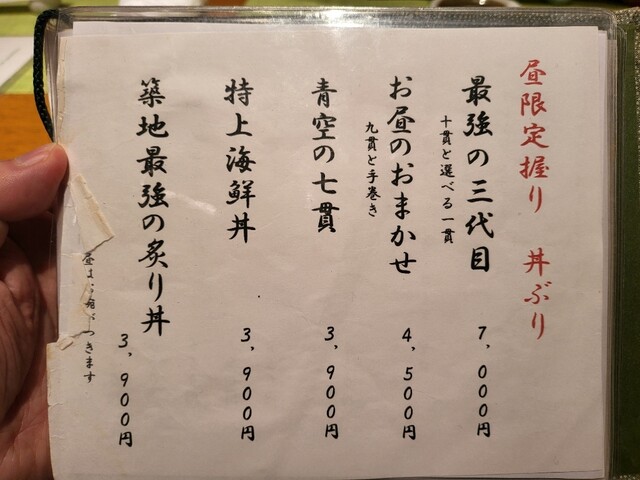 昼限定握り 丼ぶり
最強の三代目 7,000円
十貫と選べる一貫
お昼のおまかせ 4,500円
九貫と手巻き
青空の七貫 3,900円
特上海鮮丼 3,900円
築地最強の炙り丼 3,900円
つきます